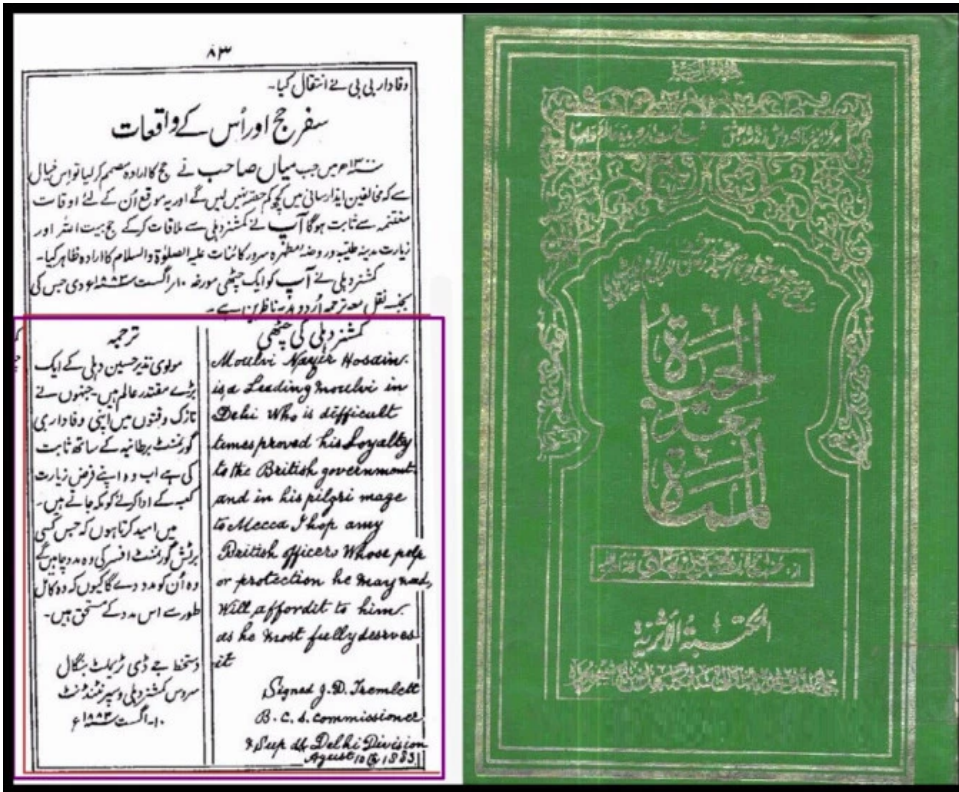 ۸۳
وفادار بی بی نے انتقال کیا۔
سفر حج اور اُس کے واقعات
سنہ ۱۳۰۰ء میں جب میاں صاحب نے حج کا ارادہ مصمم کر لیا تو اس خیال
سے کہ مخالفین ایذا رسانی میں کچھ کم حصہ نہیں لیں گے اور یہ موقع اُن کے لئے اوقات
مغتنمہ سے ثابت ہوگا آپ نے کمشنر دہلی سے ملاقات کر کے حج بیت اللہ اور
زیارت مدینہ طیبہ و روضۂ مطہرہ سرور کائنات علیہ الصلوٰۃ والسلام کا ارادہ ظاہر کیا۔
کمشنر دہلی نے آپ کو ایک چٹھی مورخہ ۱۰ اگست ۱۸۸۳ء دی جس کی
بجنسہ نقل معہ ترجمہ اُردو ہدیہ ناظرین ہے۔
کمشنر دہلی کی چٹھی
Moulvi Nazir Hosain
is a Leading moulvi in
Delhi Who is difficult
times proved his Loyalty
to the British government
and in his pilgri mage
to Mecca I hop any
British officers Whose pelp
or protection he may need,
Will affordit to him
as he most fully deserves
it
Signed J.D. Tremlett
B.C.S. Commissioner
& Sup dt Delhi Division
Agust 10th 1883
ترجمہ
مولوی نذیر حسین دہلی کے ایک
بڑے مقتدر عالم ہیں۔ جنہوں نے
نازک وقتوں میں اپنی وفاداری
گورنمنٹ برطانیہ کے ساتھ ثابت
کی ہے اب وہ اپنے فرض زیارت
کعبہ کے ادا کرنے کو مکہ جاتے ہیں۔
میں امید کرتا ہوں کہ جس کسی
برٹش گورنمنٹ افسر کی وہ مدد چاہیں گے
وہ اُن کو مدد دے گا کیوں کہ وہ کامل
طور سے اس مدد کے مستحق ہیں۔
دستخط جے ڈی ٹریملٹ بنگال
سروس کمشنر دہلی و سپرنٹنڈنٹ
۱۰۔ اگست ۱۸۸۳ء
الحیاة
بعد
المماة
المکتبة الأثریة